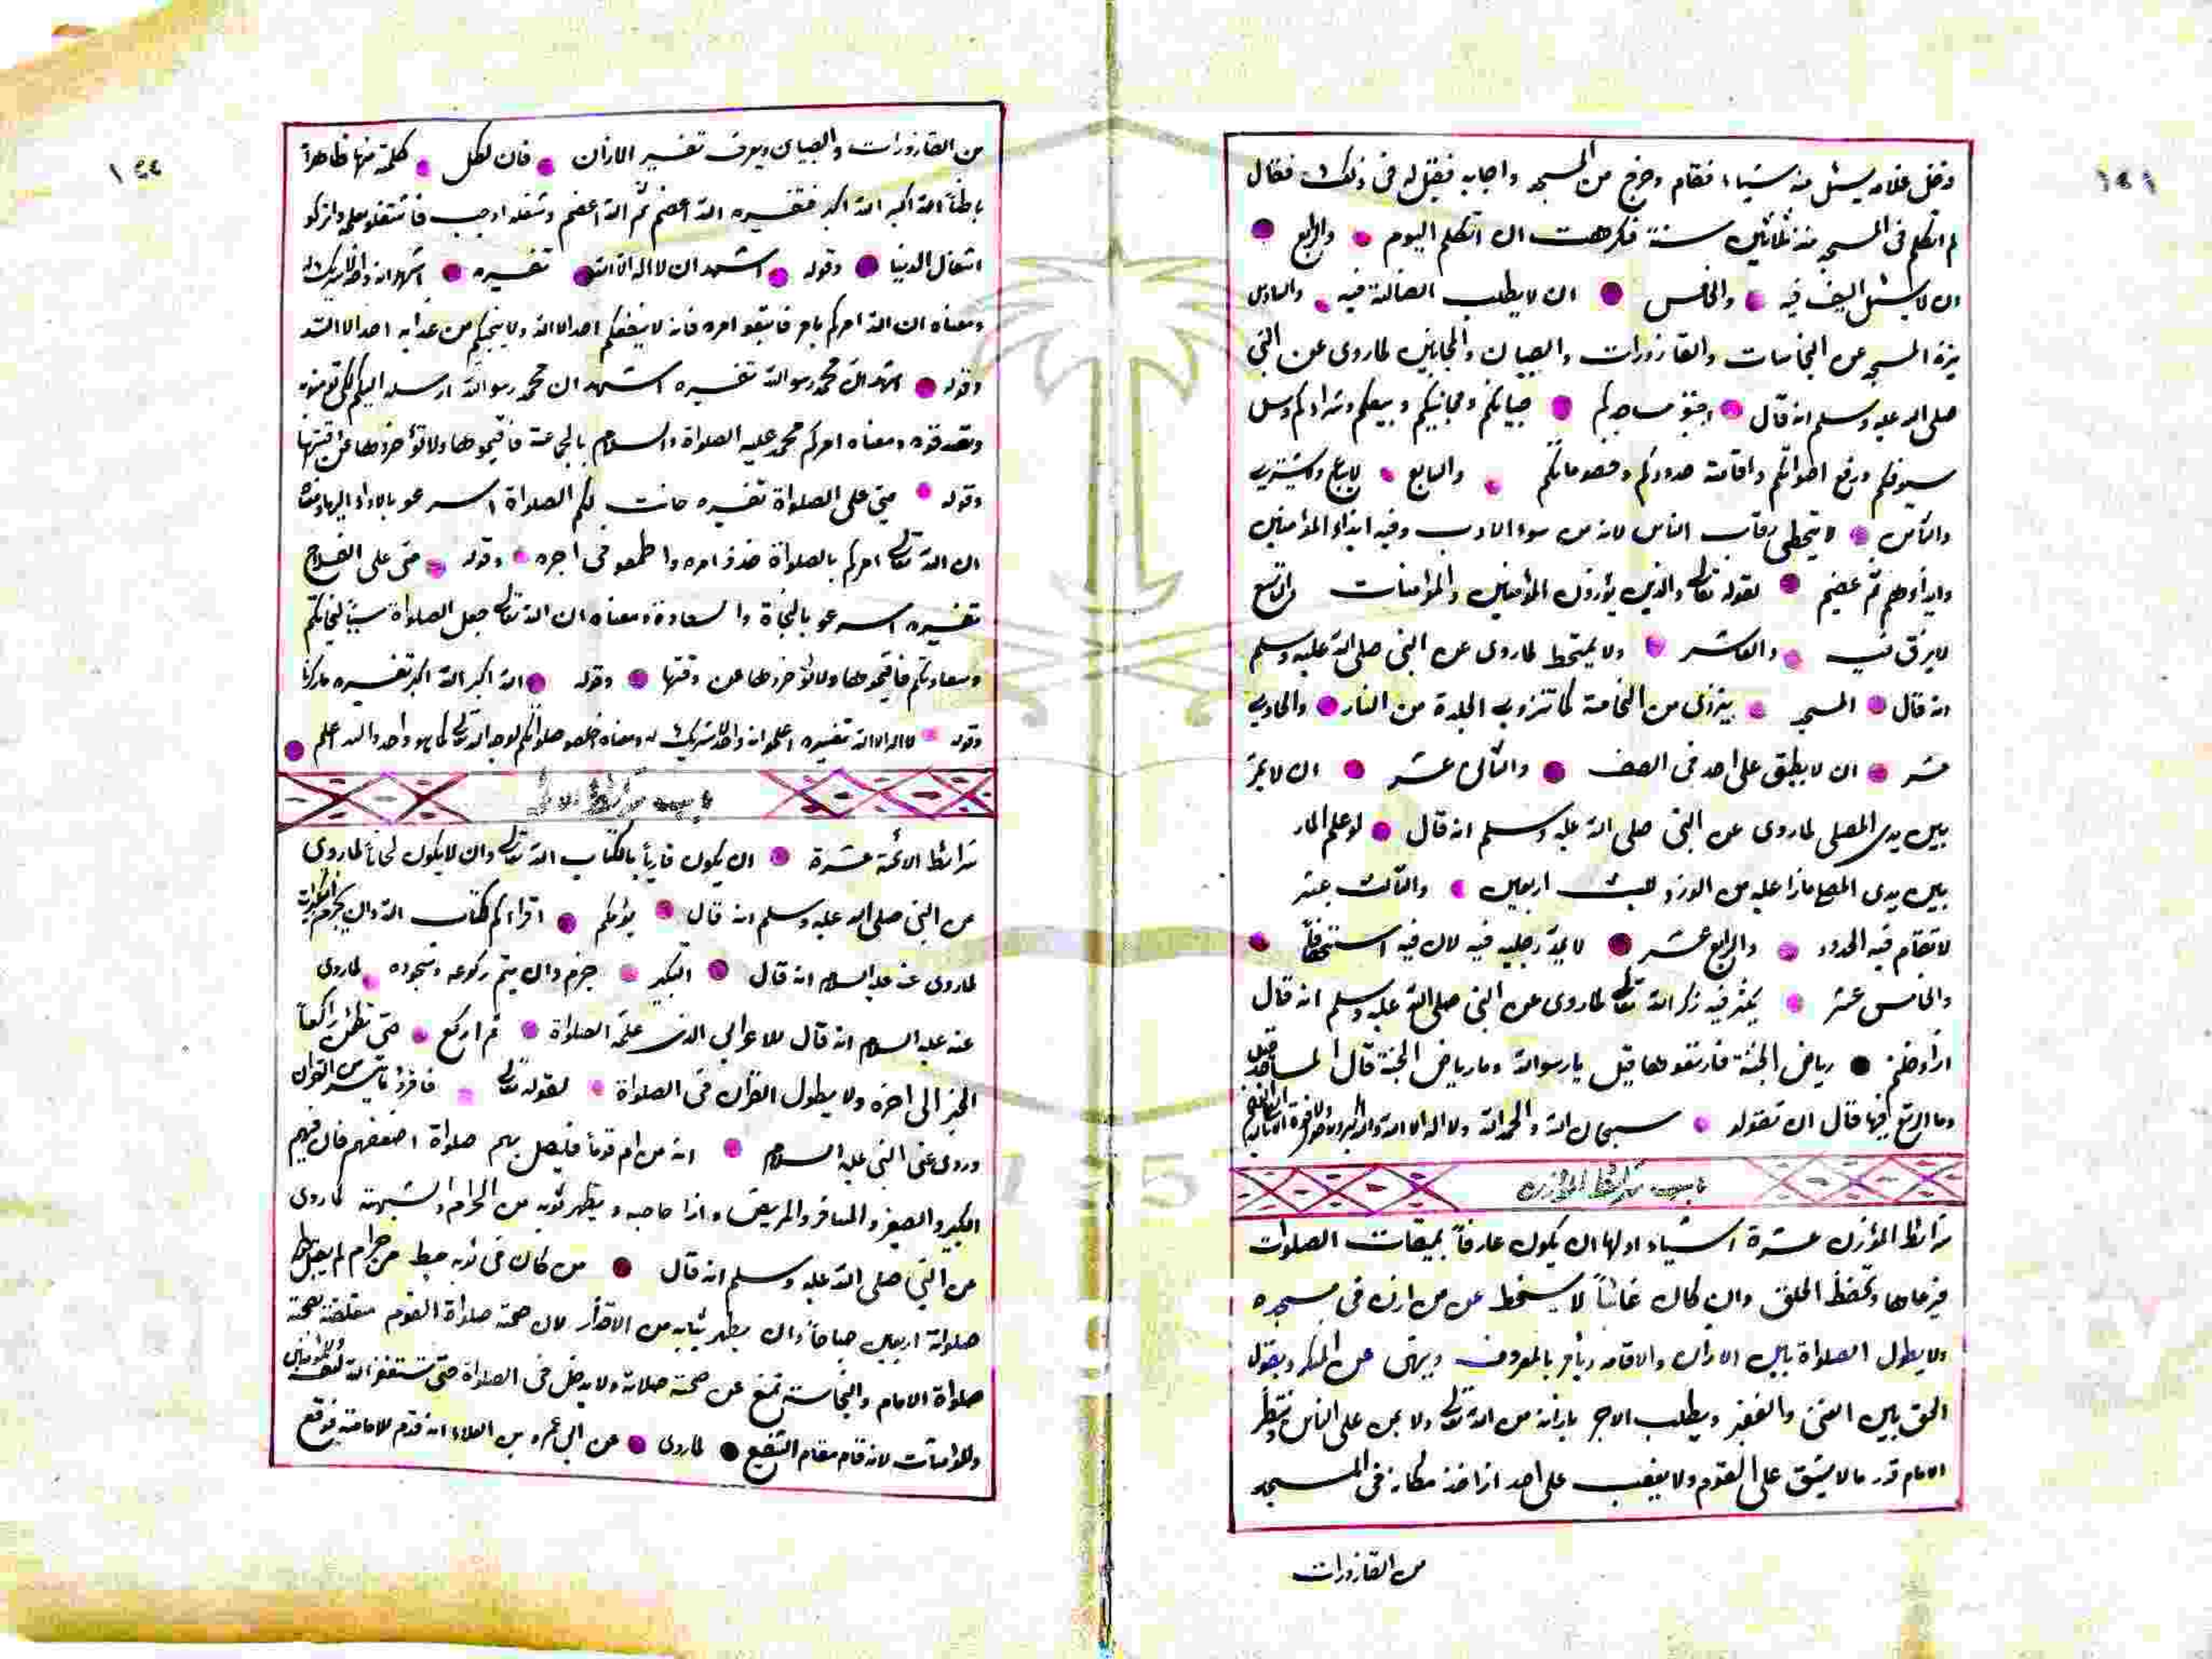 دخل غلامه يسئل منه شياء فقام وخرج من المسجد واجابه فقيل له فى ذلك فقال
لم اتكلم فى المسجد منذ ثلاثين سنة فكرهت ان اتكلم اليوم والرابع
ان لا يسئل السيف فيه والخامس ان لا يطلب الضالة فيه والسادس
ينزه المسجد عن النجاسات والقازورات والصبيان والمجانين لما روى عن النبى
صلى الله عليه وسلم انه قال اجنبو مساجدكم صبيانكم ومجانينكم وبيعكم وشراءكم وسل
سيوفكم ورفع اصواتكم واقامة حدودكم وخصوماتكم والسابع لا يباع ويشترى
والثامن لا يتخطى رقاب الناس لانه من سوء الادب وفيه ايذاء المؤمنين
وايذاؤهم ثم عضيم لقوله تعالى والذين يؤذون المؤمنين والمؤمنات والتاسع
لا يبزق فيه والعاشر ولا يمتخط لما روى عن النبى صلى الله عليه وسلم
انه قال المسجد ينزوى من النخامة كما تنزوى الجلدة من النار والحادى
عشر ان لا يضيق على احد فى الصف والثانى عشر ان لا يمر
بين يدى المصلى لما روى عن النبى صلى الله عليه وسلم انه قال لو علم المار
بين يدى المصلى ماذا عليه من الوزر للبث اربعين والثالث عشر
لا تقام فيه الحدود والرابع عشر لا يمد رجليه فيه لان فيه استخفافاً
والخامس عشر يكثر فيه ذكر الله تعالى لما روى عن النبى صلى الله عليه وسلم انه قال
اذا دخلتم رياض الجنة فارتعوها قيل يا رسوالله وما رياض الجنة قال المساجد قيل
وما الرتع فيها قال ان تقولو سبحان الله والحمدلله ولا اله الا الله والله اكبر
باب شرائط المؤذن
شرائط المؤذن عشرة اشياء اولها ان يكون عارفاً بميقات الصلوات
فيرعاها وتحفظ الخلق وان كان غائباً لا يسخط عن من اذن فى مسجده
ولا يطول الصلواة بين الاذان والاقامه ويأمر بالمعروف وينهى عن المنكر ويقول
الحق بين الغنى والفقير ويطلب الاجر باذانه من الله تعالى ولا يمن على الناس وينتظر
الامام قدر ما لا يشق على القوم ولا يغضب على احد اذا اخذ مكانه فى المسجد
من القازورات
من القازورات والصبيان ويعرف تفسير الاذان فان لكل كلمة منها ظاهراً
باطناً الله اكبر الله اكبر فتفسيره الله اعضم ثم الله اعضم وشغله اوجب فاشتغلو بعمله واتركو
اشغال الدنيا وقوله اشهد ان لا اله الا الله تفسيره اشهد انه واحد لا شريك له
ومعناه ان الله امركم بامر فاتبعو امره فانه لا ينفعكم احد الا الله ولا ينجيكم من عذابه احد الا الله
وقوله اشهد ان محمد رسوالله تفسيره اشهد ان محمد رسوالله ارسله اليكم لكى تومنو
وتصدقوه ومعناه امركم محمد عليه الصلواة والسلام بالجماعة فاقيموها ولا تؤخروها عن وقتها
وقوله حى على الصلواة تفسيره حانت لكم الصلواة اسرعو بالاداء اليها ومعناه
ان الله تعالى امركم بالصلواة خذو امره واطمعو فى اجره وقوله حى على الفلاح
تفسيره اسرعو بالنجاة والسعادة ومعناه ان الله تعالى جعل الصلواة سبباً لنجاتكم
وسعادتكم فاقيموها ولا تؤخروها عن وقتها وقوله الله اكبر الله اكبر تفسيره ما ذكرنا
وقوله لا اله الا الله تفسيره اعلمو انه واحد لا شريك له ومعناه اخلصو صلواتكم لوجه الله تعالى كما هو واحد والله اعلم
باب شرائط الامام
شرائط الائمة عشرة ان يكون قارياً بالكتاب الله تعالى وان لا يكون لحاناً لما روى
عن النبى صلى الله عليه وسلم انه قال يؤمكم اقراءكم لكتاب الله وان يجزم التكبيرات
لما روى عنه عليه السلام انه قال التكبير جزم وان يتم ركوعه وسجوده لما روى
عنه عليه السلام انه قال للاعرابى الذى علمه الصلواة ثم اركع حتى تطمئن راكعاً
الخبر الى اخره ولا يطول القرآن فى الصلواة لقوله تعالى فاقرؤ ما تيسر من القرآن
وروى عن النبى عليه السلام انه من ام قوماً فليصل بهم صلواة اضعفهم فان فيهم
الكبير والصغير والمسافر والمريض وذا حاجه ويطهر ثوبه من الحرام والشبهة لما روى
عن النبى صلى الله عليه وسلم انه قال من كان فى ثوبه خيط من حرام لم يقبل الله
صلواته اربعين صباحاً وان يطهر ثيابه من الاقذار لان صحة صلواة القوم متعلقة بصحة
صلواة الامام والنجاسة تمنع عن صحة صلاته ولا يدخل فى الصلواة حتى يستغفر الله لنفسه وللمؤمنين
وللمؤمنات لانه قام مقام الشفيع لما روى عن ابى عمرو بن العلاء انه قدم للامامة فوقع